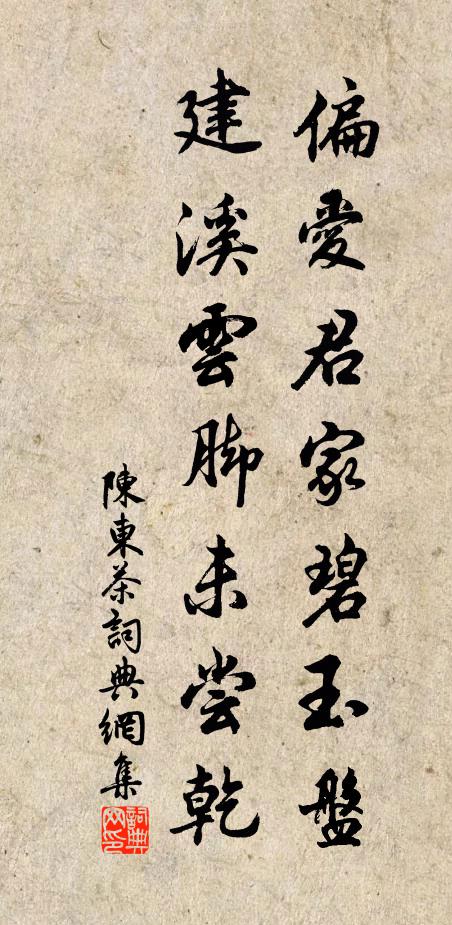 偏愛君家碧玉盤
建溪雲脚未尝乾
陳東茶詞典網集
詞典网印